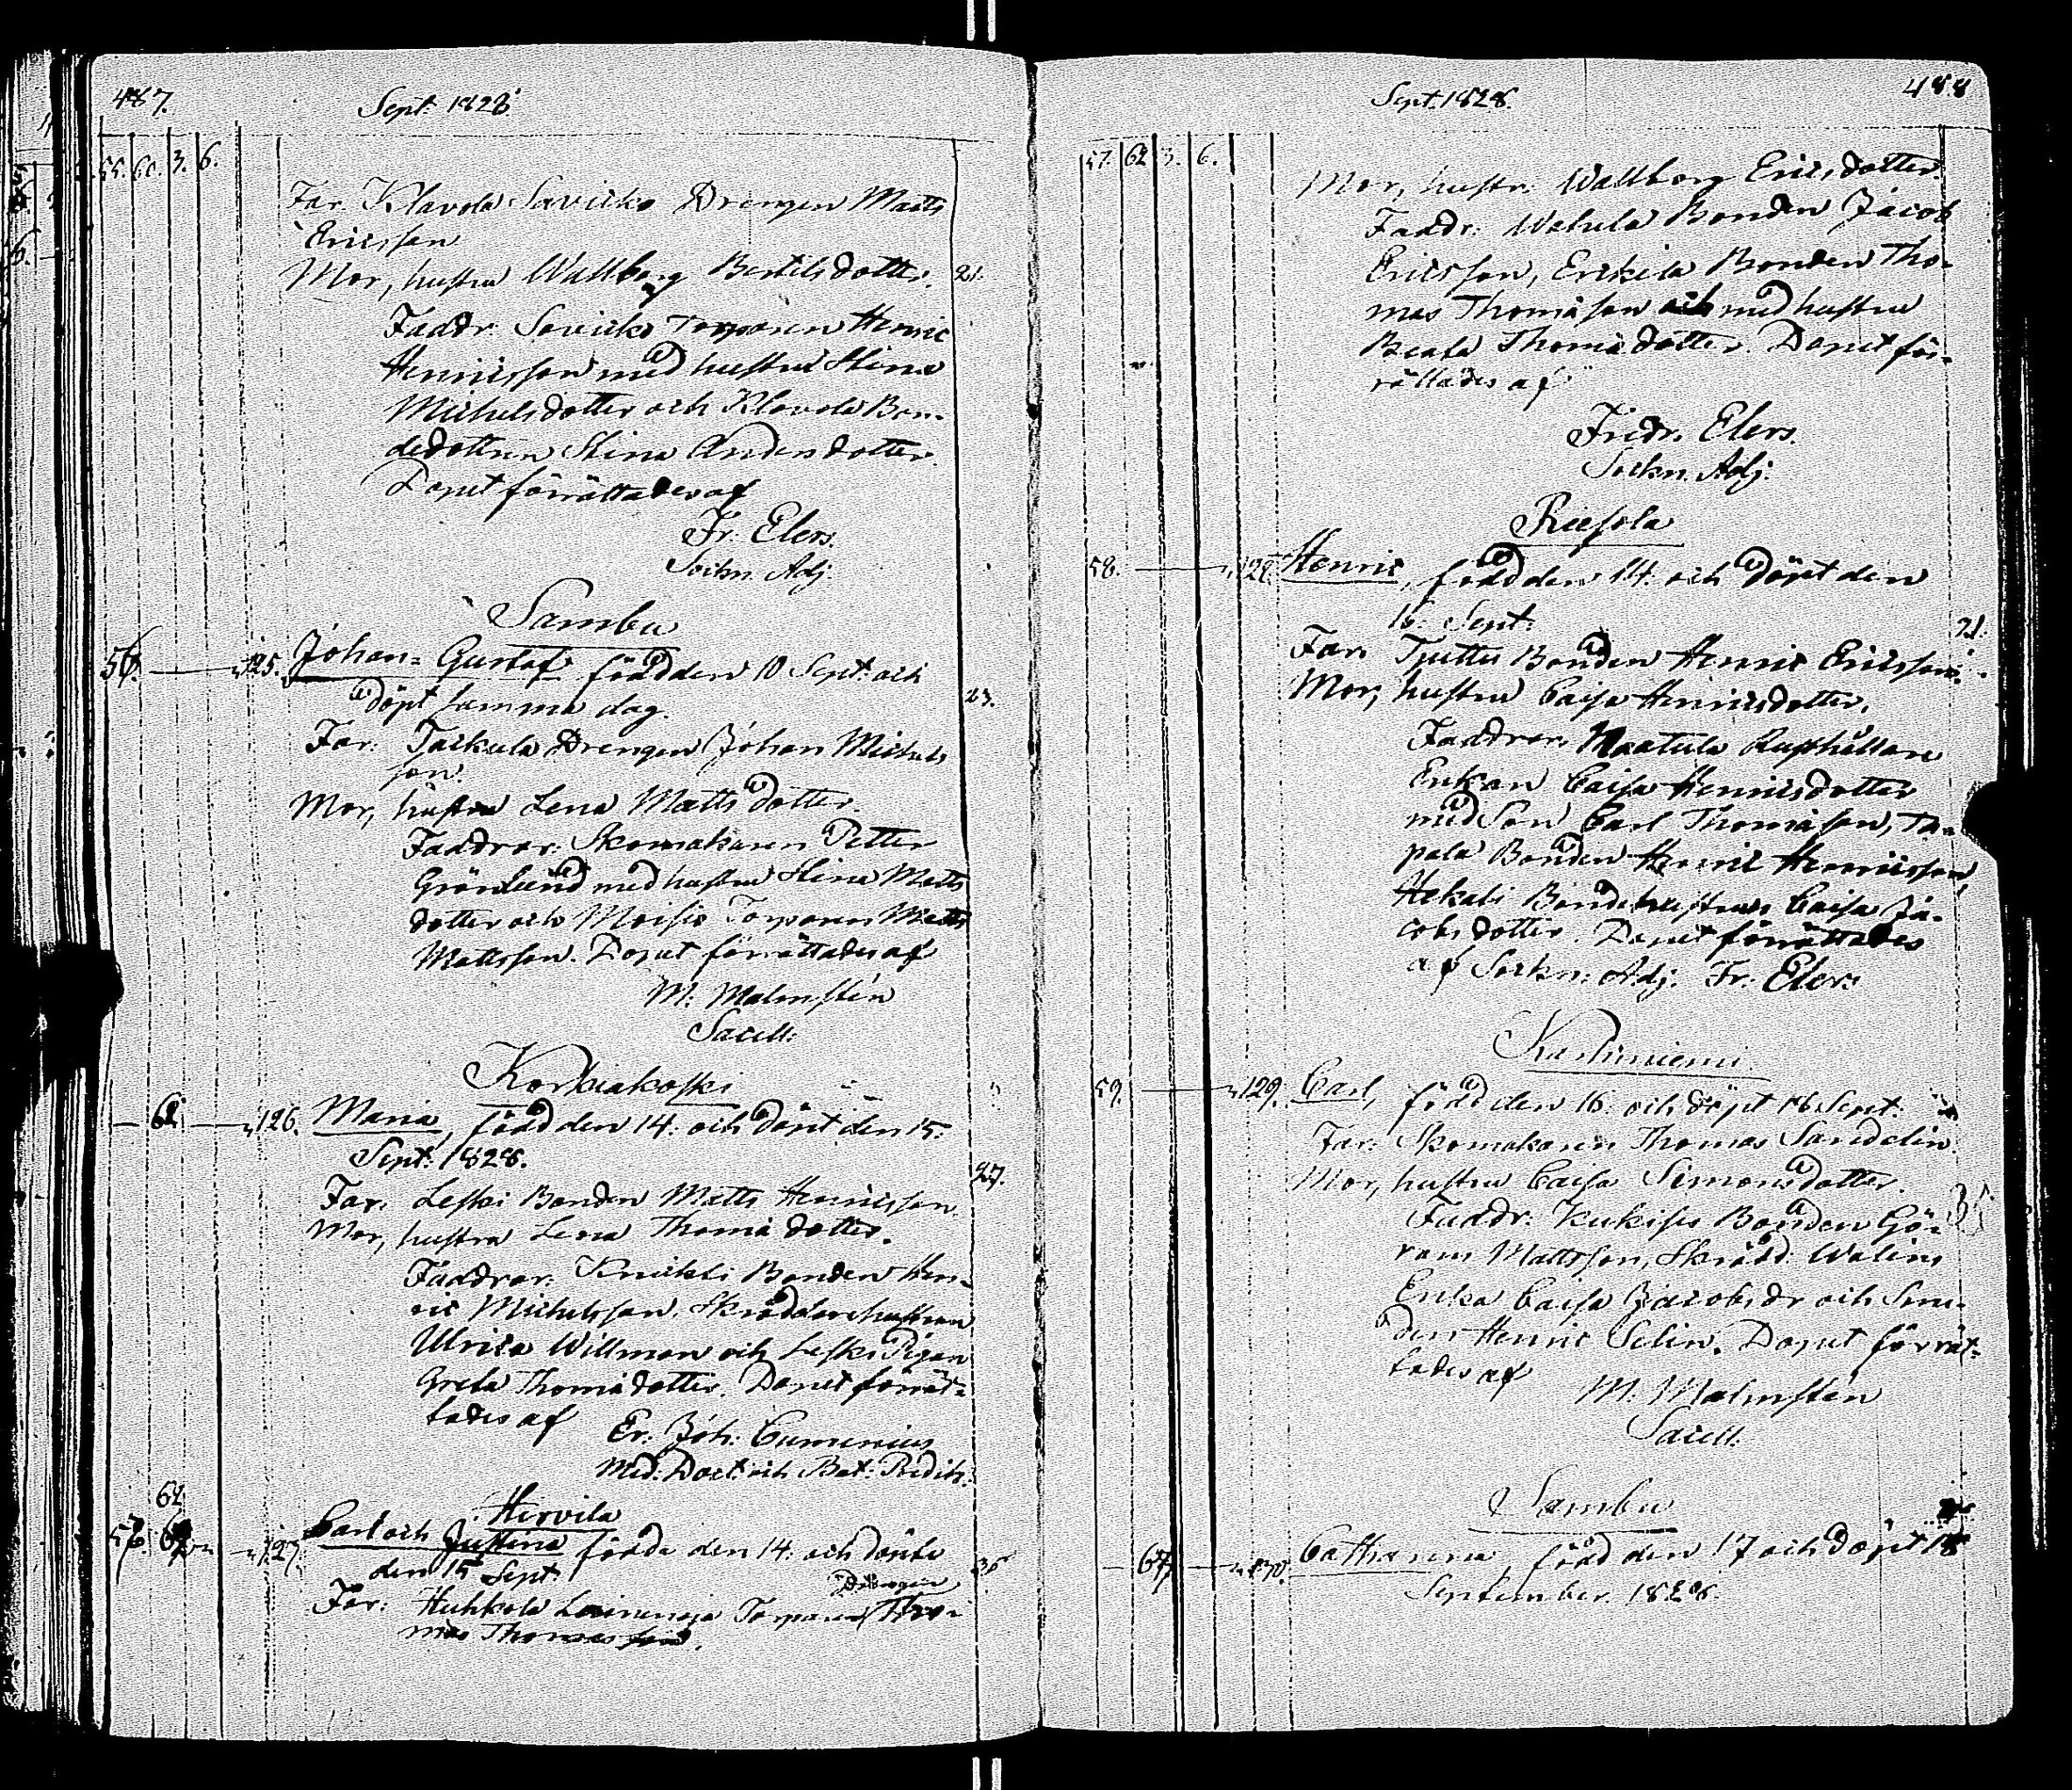 487.
Sept. 1828
55. 60. 3. 6.
Far. Klavola Savicko Drengen Matts
Ericsson
Mor, hustru Wallborg Bertilsdotter. 21.
Faddr. Savicko Torparen Henric
Henricsson med hustru Stina
Michelsdotter och Klavola Bon-
dedottren Stina Andersdotter.
Doput förrättades af
Fr. Elers.
Sockn. Adj.
Sambu
56. 125. Johan-Gustaf född den 10 Sept. och
döpt samma dag. 23.
Far. Taikula Drengen Johan Michels
son.
Mor, hustru Lena Matts dotter.
Faddrar. Skomakaren Petter
Grönlund med hustru Stina Matts
dotter och Moisio Torparen Matts
Mattsson. Doput förrättades af
M. Malmstén
Sacell.
Korkiakoski
126. Maria, född den 14. och döpt den 15.
Sept. 1828. 27.
Far. Leski Bonden Matts Henricsson.
Mor, hustru Lena Thomædotter.
Faddrar. Knickti Bonden Hen-
ric Michelsson. Skräddarehustrun
Ulrica Willman och Leski Pigan
Greta Thomædotter. Doput förrät-
tades af
Er. Joh. Cumenius
Med. Doct. och Bat. Predik.
Hirvila
62
57. 127. Carl och Justina födda den 14. och döpta
den 15 Sept.
Drengen
Far. Huhkola Torparen Tho-
mas Thomasson.
488
Sept. 1828.
57. 62 3. 6.
Mor, hustr. Wallborg Ericsdotter.
Faddr. Bonden Jacob
Ericsson, Erikila Bonden Tho-
mas Thomæson och med hustru
Beata Thomædotter. Doput för-
rättades af
Fredr. Elers.
Sockn. Adj.
Riesola
58. 128. Henric, född den 14. och döpt den
16. Sept. 21.
Far. Tjuttu Bonden Henric Ericsson.
Mor, hustru Caisa Henricsdotter.
Faddrar. Maatula Rusthållare
Enkan Caisa Henricsdotter
med Son Carl Thomæson, Ta-
pala Bonden Henric Henricsson,
Hekali Bondehustrun Caisa Ja-
cobsdotter. Doput förrättades
af Sockn. Adj. Fr. Elers
Karhiniemi
59. 129. Carl, född den 16. och döpt 16. Sept.
Far. Skomakaren Thomas Sandelin.
Mor, hustru Caisa Simonsdotter.
Faddr. Kukisis Bonden Gö-
ran Mattsson, Skrädd. Walins
Enka Caisa Jacobsdr och Sme-
den Henric Selin. Doput förrät-
tades af
M. Malmstén
Sacell.
Sambu
67. 130. Catharina, född den 17 och döpt 18
September 1828.